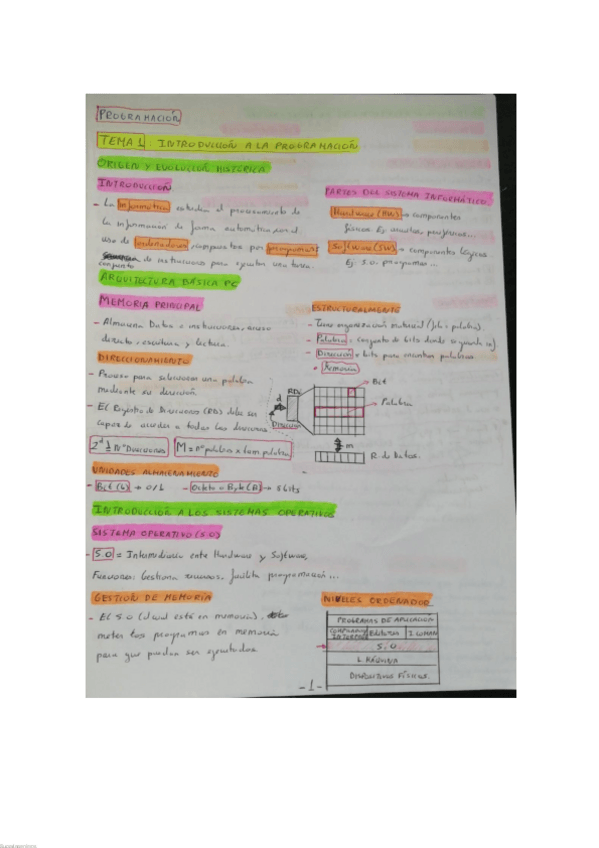 PROGRAMACIÓN
TEMA 1. INTRODUCCIÓN A LA PROGRAMACIÓN
ORIGEN Y EVOLUCIÓN HISTÓRICA
INTRODUCCIÓN
- La informática estudia el procesamiento de
la información de forma automática con el
uso de ordenadores compuestos por programas
conjunto de instrucciones para ejecutar una tarea.
PARTES DEL SISTEMA INFORMÁTICO
Hardware (HW) → componentes
físicos. Ej: ratón, periféricos...
Software (SW) → componentes lógicos
Ej: S.O. programas...
ARQUITECTURA BÁSICA PC
MEMORIA PRINCIPAL
- Almacena Datos e instrucciones, acceso
directo, escritura y lectura.
DIRECCIONAMIENTO
- Proceso para seleccionar una palabra
mediante su dirección.
- El Registro de Direcciones (RD) debe ser
capaz de acceder a todas las direcciones
2^d ≥ Nº Direcciones
M = nº palabras x tam palabra
ESTRUCTURALMENTE
- Tiene organización matricial (bits × palabra)
- Palabra = conjunto de bits donde se guarda
- Dirección = bits para mostrar palabras.
• Memoria
RD
d
Dirección
Bit
Palabra
m
R. de Datos.
UNIDADES ALMACENAMIENTO
- Bit (b) → 0/1 - Octeto = Byte (B) → 8 bits
INTRODUCCIÓN A LOS SISTEMAS OPERATIVOS
SISTEMA OPERATIVO (S.O)
- S.O = Intermediario entre Hardware y Software,
Funciones: Gestiona recursos, facilita programación...
GESTIÓN DE MEMORIA
- El S.O (el cual está en memoria),
mete los programas en memoria
para que puedan ser ejecutados.
NIVELES ORDENADOR
PROGRAMAS DE APLICACIÓN
COMPILADOR INTERPRETE EDITORES I. COMAN
S.O
L. MÁQUINA
DISPOSITIVOS FÍSICOS.
- 1 -